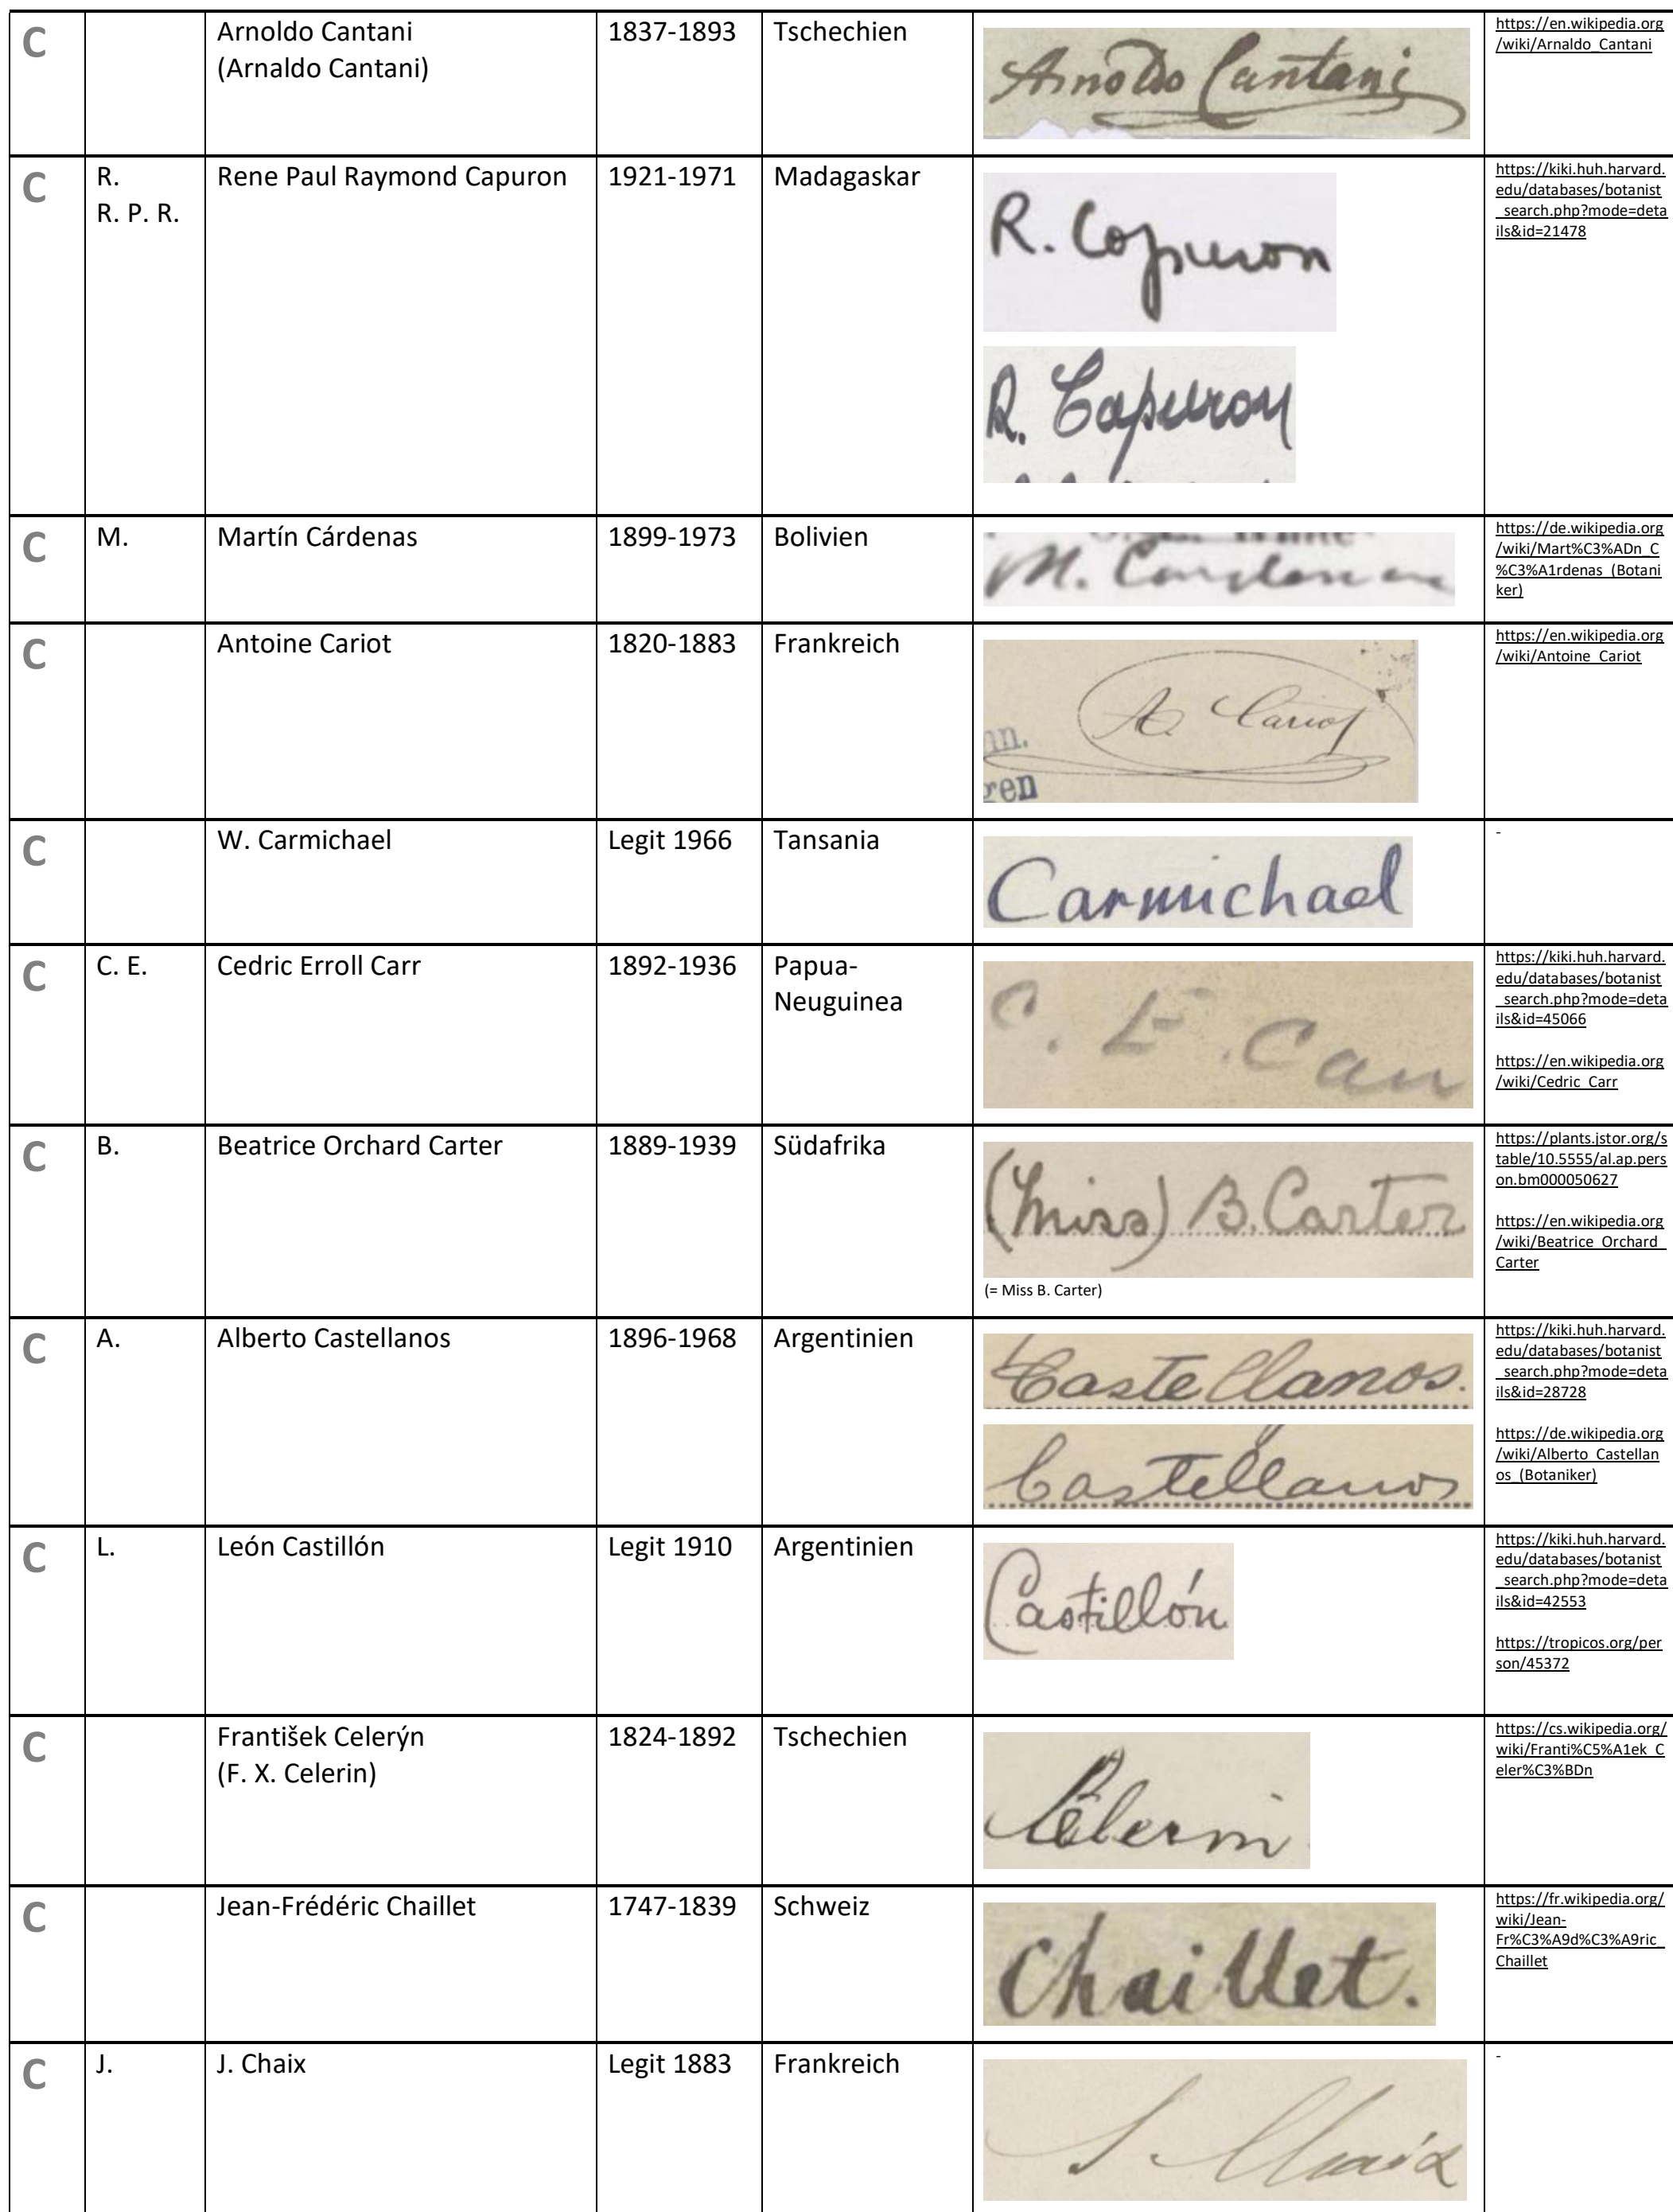 C
Arnoldo Cantani
(Arnaldo Cantani)
1837-1893
Tschechien
Arnoldo Cantani
https://en.wikipedia.org
/wiki/Arnaldo_Cantani
C
R.
R. P. R.
Rene Paul Raymond Capuron
1921-1971
Madagaskar
R. Capuron
R. Capuron
https://kiki.huh.harvard.
edu/databases/botanist
_search.php?mode=deta
ils&id=21478
C
M.
Martín Cárdenas
1899-1973
Bolivien
M. Cardenas
https://de.wikipedia.org
/wiki/Mart%C3%ADn_C
%C3%A1rdenas_(Botani
ker)
C
Antoine Cariot
1820-1883
Frankreich
A. Cariot
nn.
gen
https://en.wikipedia.org
/wiki/Antoine_Cariot
C
W. Carmichael
Legit 1966
Tansania
Carmichael
-
C
C. E.
Cedric Erroll Carr
1892-1936
Papua-
Neuguinea
C. E. Carr
https://kiki.huh.harvard.
edu/databases/botanist
_search.php?mode=deta
ils&id=45066
https://en.wikipedia.org
/wiki/Cedric_Carr
C
B.
Beatrice Orchard Carter
1889-1939
Südafrika
(Miss) B. Carter
(= Miss B. Carter)
https://plants.jstor.org/s
table/10.5555/al.ap.pers
on.bm000050627
https://en.wikipedia.org
/wiki/Beatrice_Orchard_
Carter
C
A.
Alberto Castellanos
1896-1968
Argentinien
Castellanos.
Castellanos
https://kiki.huh.harvard.
edu/databases/botanist
_search.php?mode=deta
ils&id=28728
https://de.wikipedia.org
/wiki/Alberto_Castellan
os_(Botaniker)
C
L.
León Castillón
Legit 1910
Argentinien
Castillón
https://kiki.huh.harvard.
edu/databases/botanist
_search.php?mode=deta
ils&id=42553
https://tropicos.org/per
son/45372
C
František Celerýn
(F. X. Celerin)
1824-1892
Tschechien
Celerin
https://cs.wikipedia.org/
wiki/Franti%C5%A1ek_C
eler%C3%BDn
C
Jean-Frédéric Chaillet
1747-1839
Schweiz
Chaillet.
https://fr.wikipedia.org/
wiki/Jean-
Fr%C3%A9d%C3%A9ric_
Chaillet
C
J.
J. Chaix
Legit 1883
Frankreich
J. Chaix
-